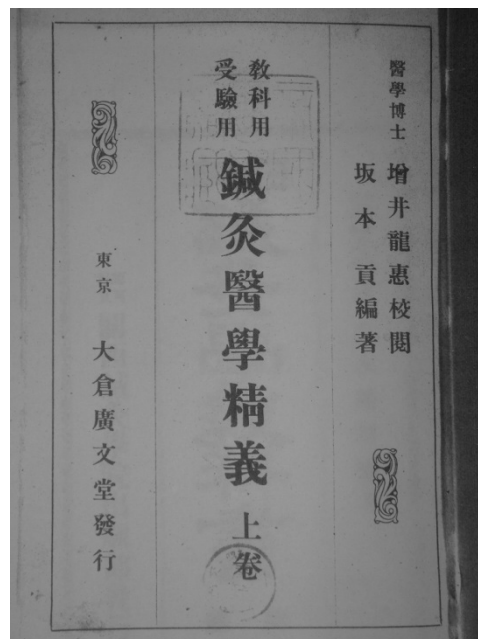 醫學博士 増井龍惠校閲
坂本貢編著
教科用
受驗用
鍼灸醫學精義 上卷
東京 大倉廣文堂發行